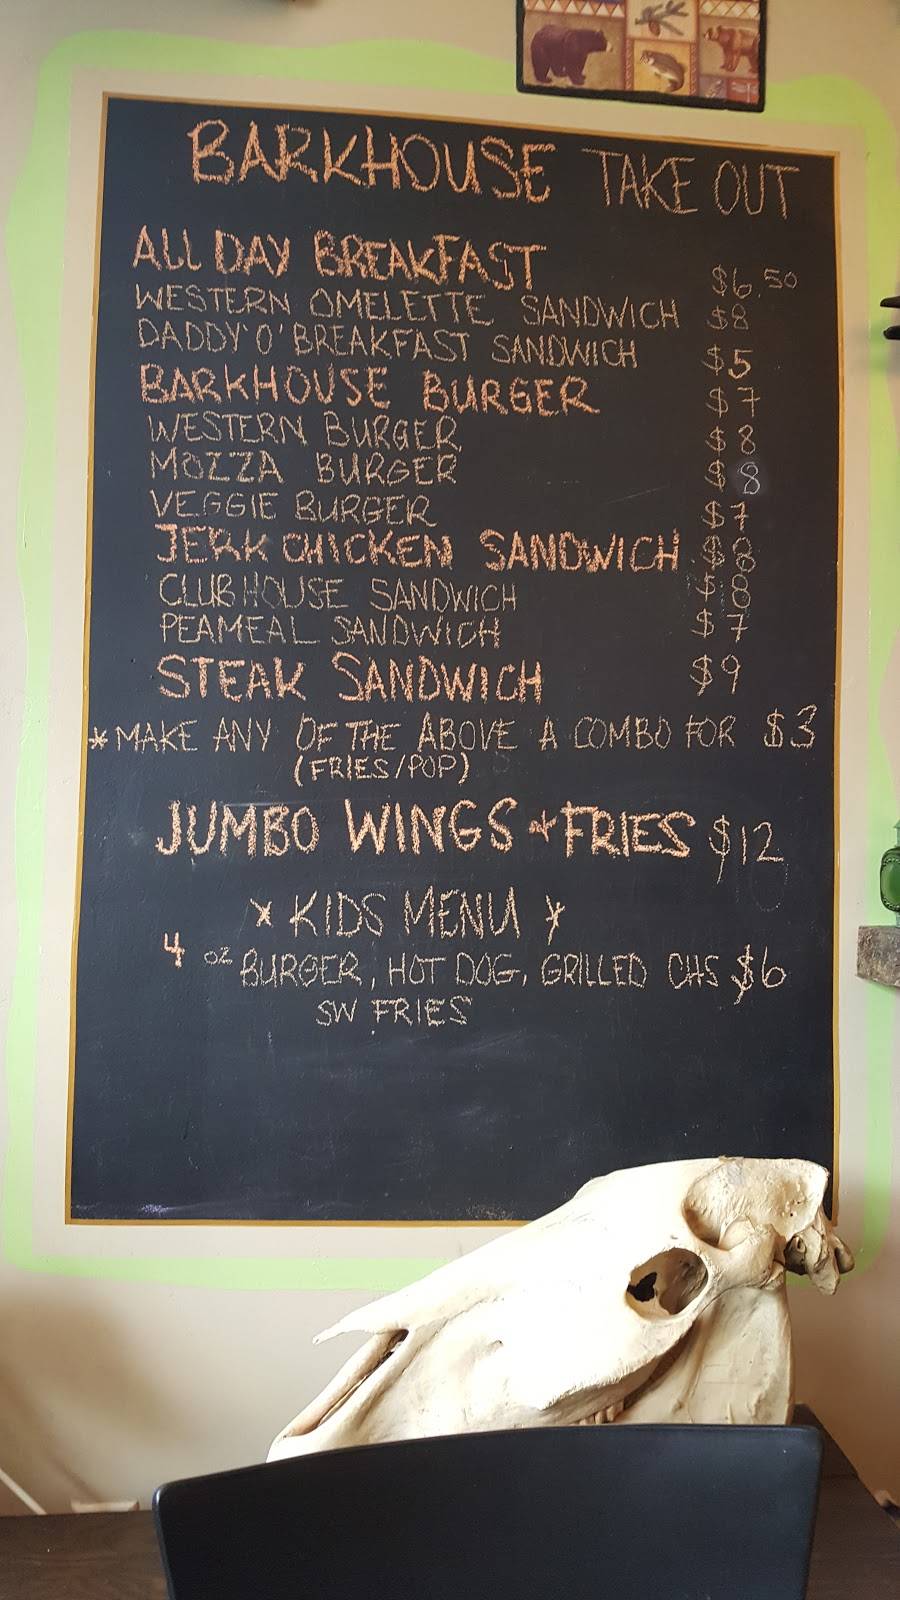 BARKHOUSE TAKE OUT
ALL DAY BREAKFAST $6.50
WESTERN OMELETTE SANDWICH $8
DADDY'O' BREAKFAST SANDWICH $5
BARKHOUSE BURGER $7
WESTERN BURGER $8
MOZZA BURGER $8
VEGGIE BURGER $7
JERK CHICKEN SANDWICH $8
CLUBHOUSE SANDWICH $8
PEAMEAL SANDWICH $7
STEAK SANDWICH $9
* MAKE ANY OF THE ABOVE A COMBO FOR $3
(FRIES/POP)
JUMBO WINGS + FRIES $12
* KIDS MENU *
4 OZ BURGER, HOT DOG, GRILLED CHS $6
SW FRIES